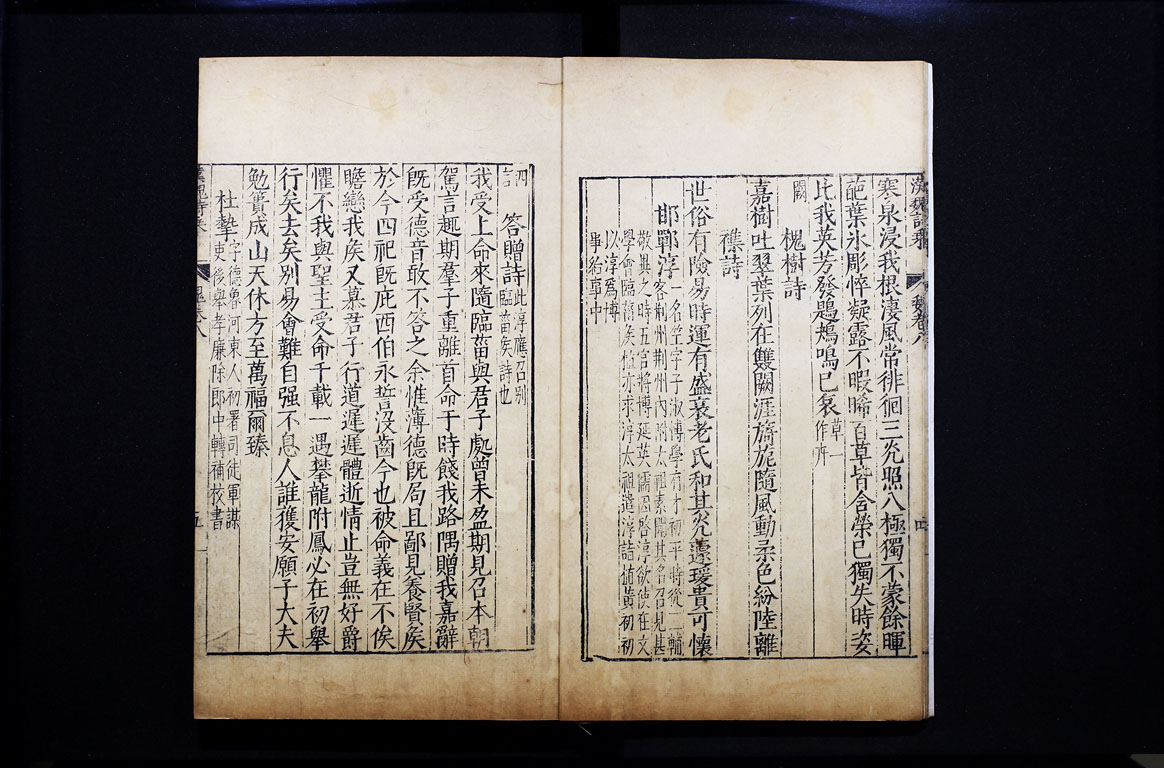 寒泉浸我根淒風常徘徊三光照八極獨不蒙餘暉
葩葉永彫悴凝露不暇晞百草皆含榮已獨失時姿
比我英芳發鶗鴂鳴已哀草一作卉
闕
槐樹詩
嘉樹吐翠葉列在雙闕涯旖旎隨風動柔色紛陸離
襍詩
世俗有險易時運有盛衰老氏和其光蘧瑗貴可懷
邯鄲淳一名竺字子淑博學有才初平時從三輔
客荊州荊州內附太祖素聞其名召見甚
敬異之時五官將博延英儒因啓淳欲使在文
學會臨菑矦植亦求淳太祖遣淳詣植黃初初
以淳爲博
事給事中
四言
答贈詩此淳應召別臨菑矦詩也
我受上命來隨臨菑與君子處曾未盈期見召本朝
駕言趣期羣子重離首命于時餞我路隅贈我嘉辭
旣受德音敢不答之余惟薄德旣局且鄙見養賢矦
於今四祀旣庇西伯永誓沒齒今也被命義在不俟
瞻戀我矦又慕君子行道遲遲體逝情止豈無好爵
懼不我與聖主受命千載一遇攀龍附鳳必在初舉
行矣去矣別易會難自强不息人誰獲安願子大夫
勉簣成山天休方至萬福爾臻
杜摯字德魯河東人初署司徒軍謀
吏後舉孝廉除郎中轉補校書